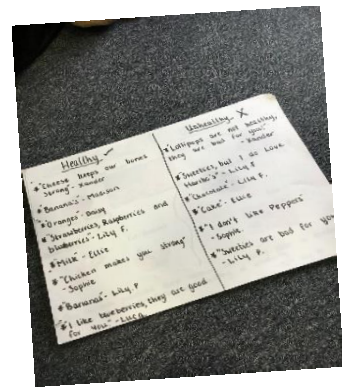 Healthy ✓
* "Cheese keeps our bones
strong" - Xander
* "Banana's" - Madison
* "Oranges" - Daisy
* "Strawberries, Raspberries and
blueberries" - Lily F.
* "Milk" - Ellie
* "Chicken makes you strong"
- Sophie
* "Bananas" - Lily.P
* "I like blueberries, they are good
for you" - Luca
Unhealthy X
* "Lollipops are not healthy,
they are bad for you" - Xander
* "Sweeties, but I do love
- Lily F
* "Chocolate" - Lily F.
* "Cake" - Ellie
* "I don't like Peppers"
- Sophie
* "Sweeties are bad for you
- Lily P.